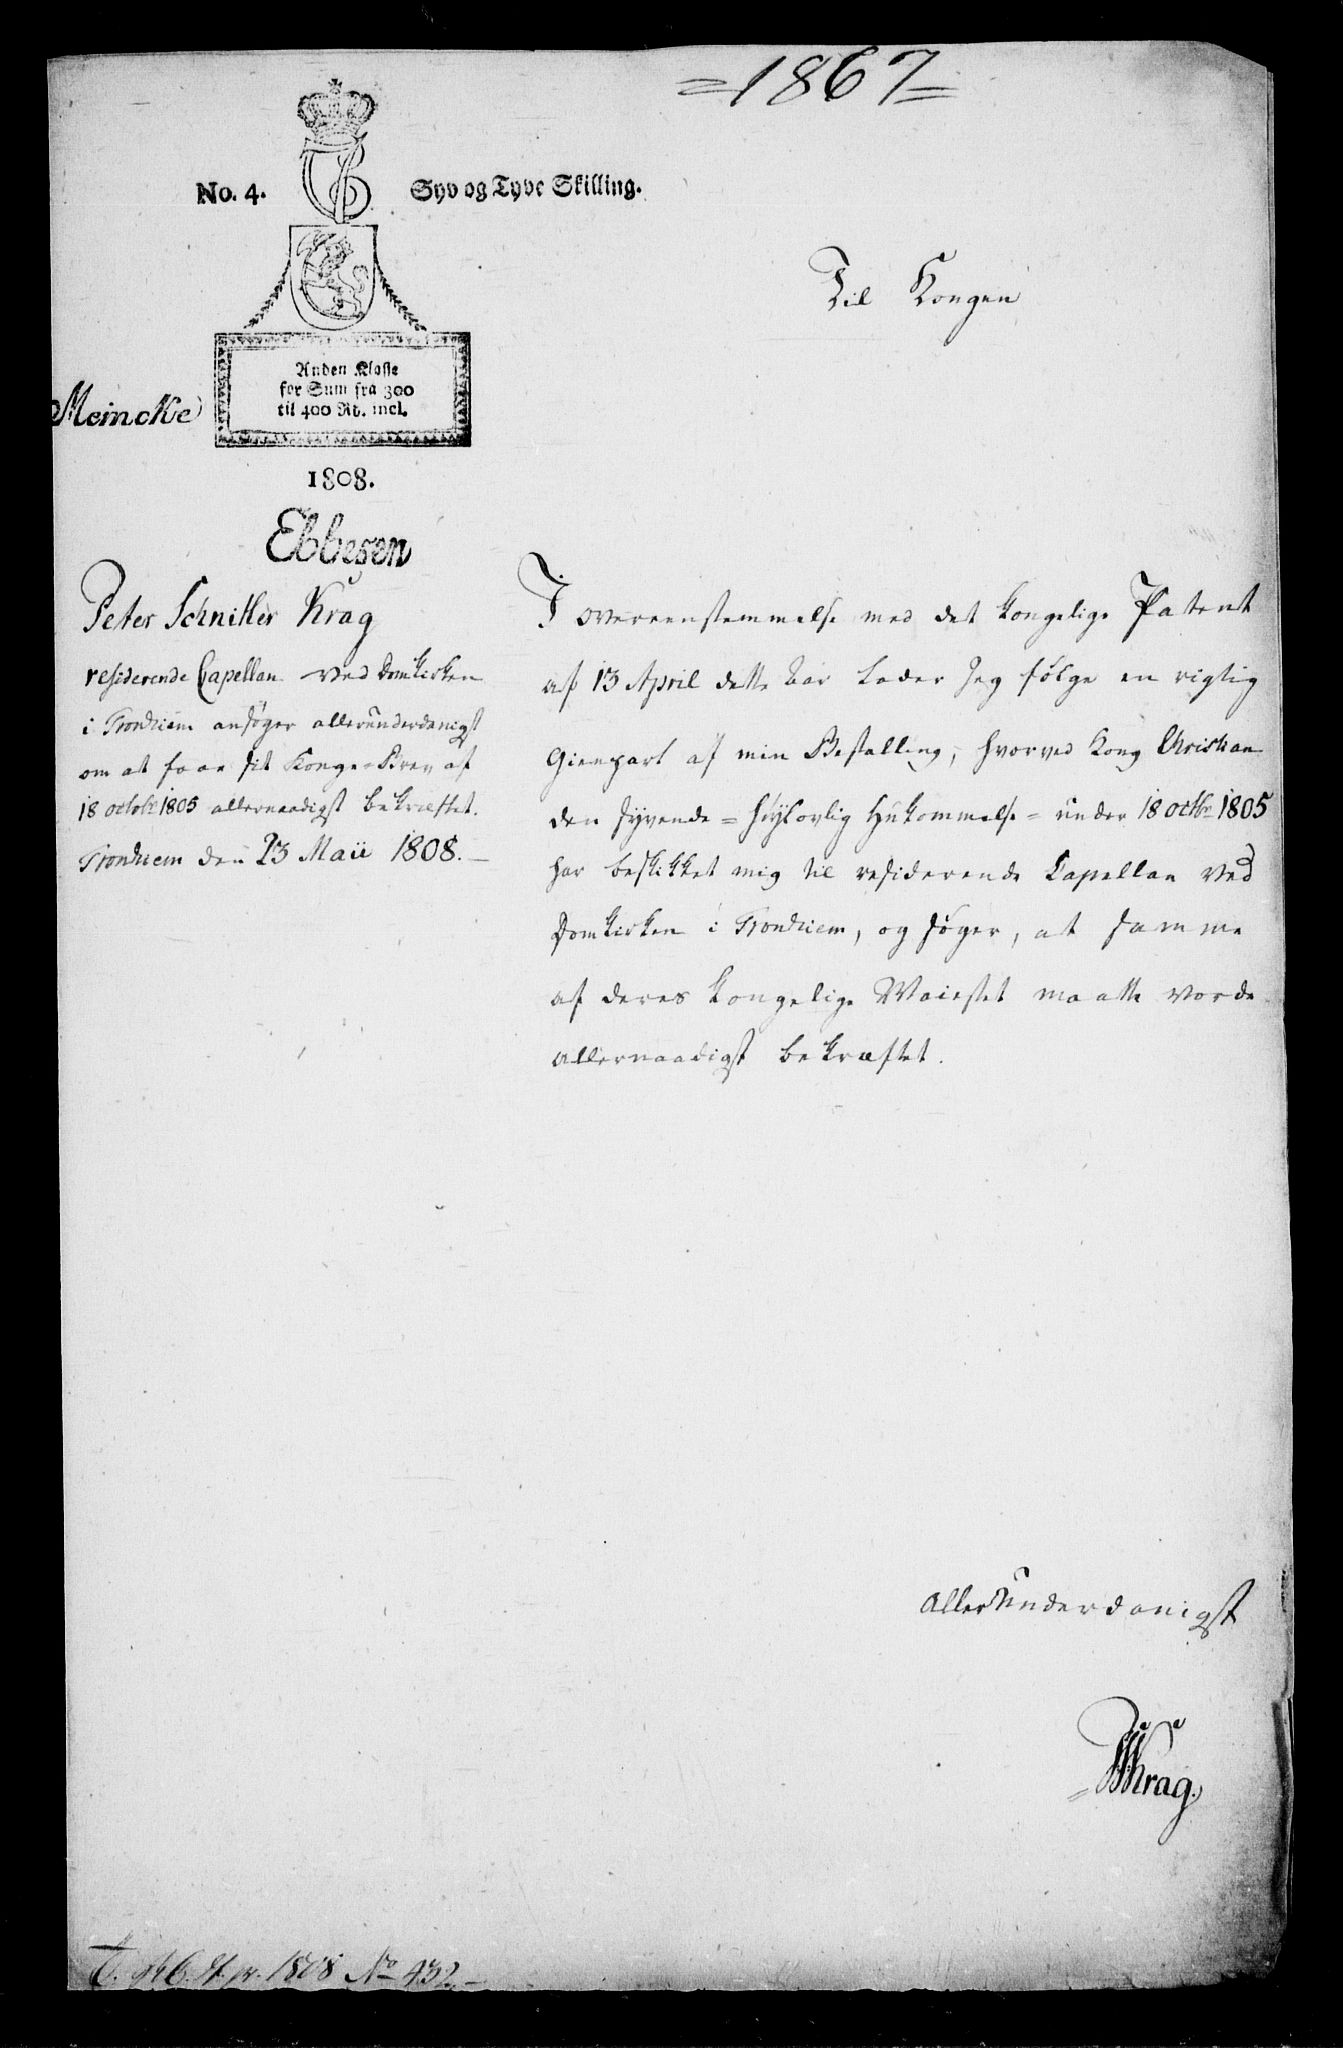 =1867=
No. 4.
Syv og Tyve Skilling.
Til Kongen
Anden Klasse
for Sum fra 300
til 400 Rd. incl.
Meincke
1808.
Ebbesen
Peter Schnitler Krag
residerende Capellan ved Domkirken
i Trondhiem ansøger allerunderdanigst
om at faae sit Konge-Brev af
18 octobr 1805 allernaadigst bekræftet.
Trondhiem den 23 Maii 1808.
I overeenstemmelse med det kongelige Patent
af 13 April dette Aar lader jeg følge en rigtig
Gienpart af min Bestalling, hvorved Kong Christian
den syvende = høylovlig Hukommelse = under 18 octbr 1805
har beskikket mig til residerende Capellan ved
Domkirken i Trondhiem, og søger, at samme
af deres kongelige Maiestet maatte vorde
allernaadigst bekræftet.
allerunderdanigst
Krag.
1808 No 432